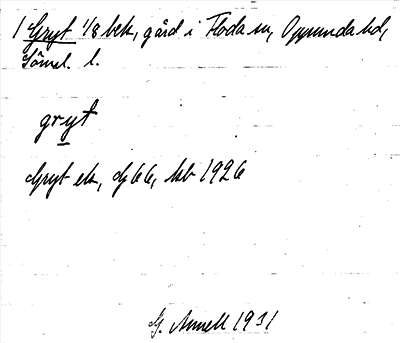 1 Gryt 1/8 bek, gård i Floda sn, Oppunda hd,
Södml. l.
gryt
Gryt ek, dj 66, kb 1926
G. Annell 1931